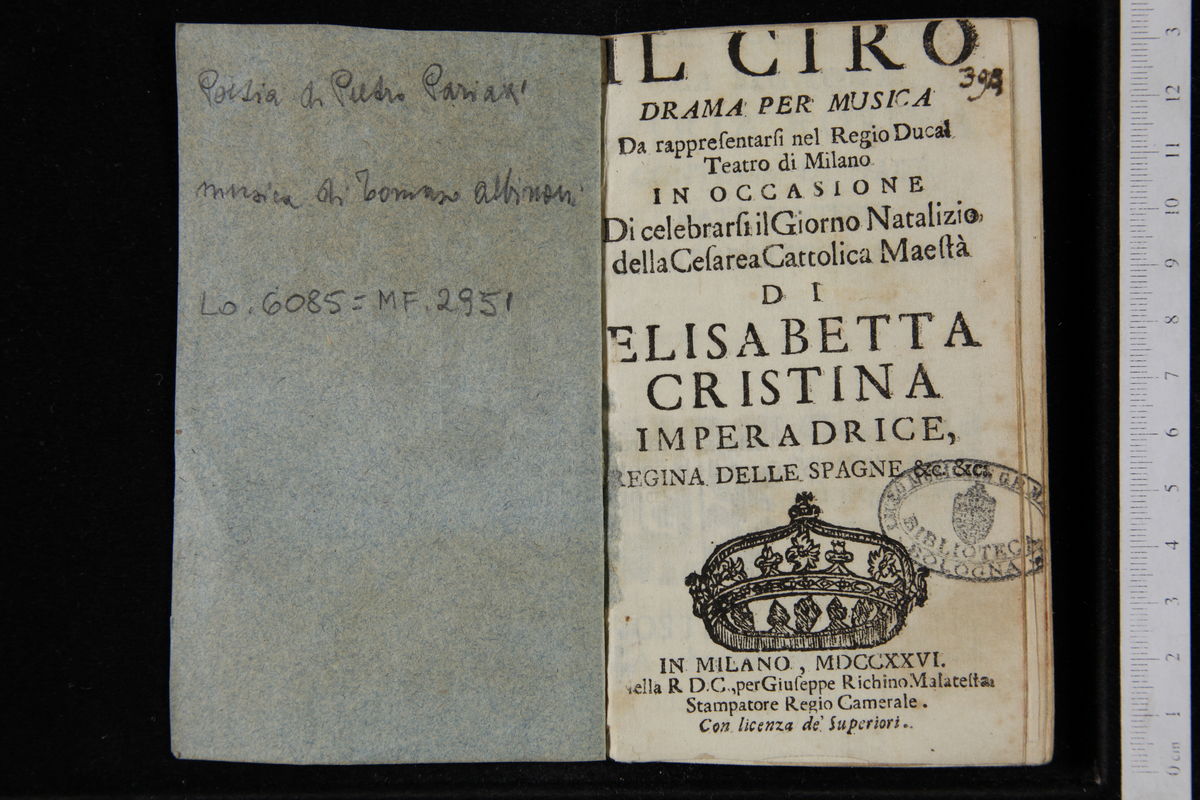 Poesia di Pietro Pariati
musica di Tomaso Albinoni
Lo. 6085 = MF. 2951
IL CIRO
DRAMA PER MUSICA
Da rappreſentarſi nel Regio Ducal
Teatro di Milano
IN OCCASIONE
Di celebrarſi il Giorno Natalizio
della Ceſarea Cattolica Maeſtà
DI
ELISABETTA
CRISTINA
IMPERADRICE,
REGINA DELLE SPAGNE &c. &c.
BIBLIOTECA
BOLOGNA
IN MILANO, MDCCXXVI.
nella R. D. C., per Giuſeppe Richino Malateſta
Stampatore Regio Camerale.
Con licenza de' Superiori.
0 cm 1 2 3 4 5 6 7 8 9 10 11 12 3